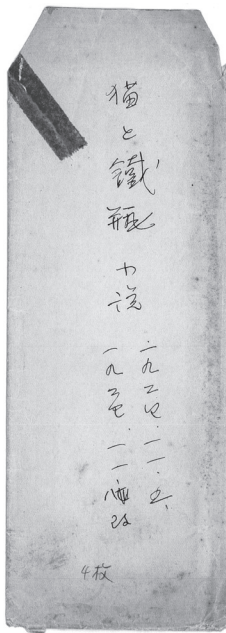 猫と鐵瓶 小説
一九二七・一一・五、
一九二七・一一
4枚